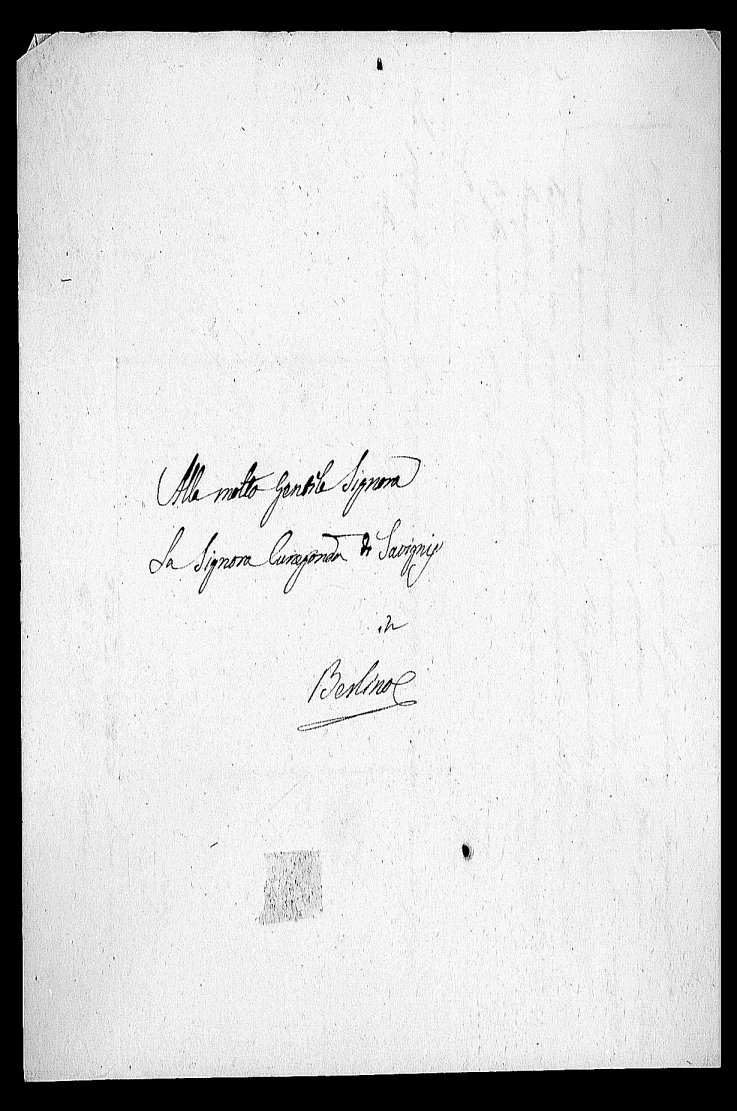 Alla molto Gentile Signora
La Signora Cunegonda di Savignij
in
Berlino